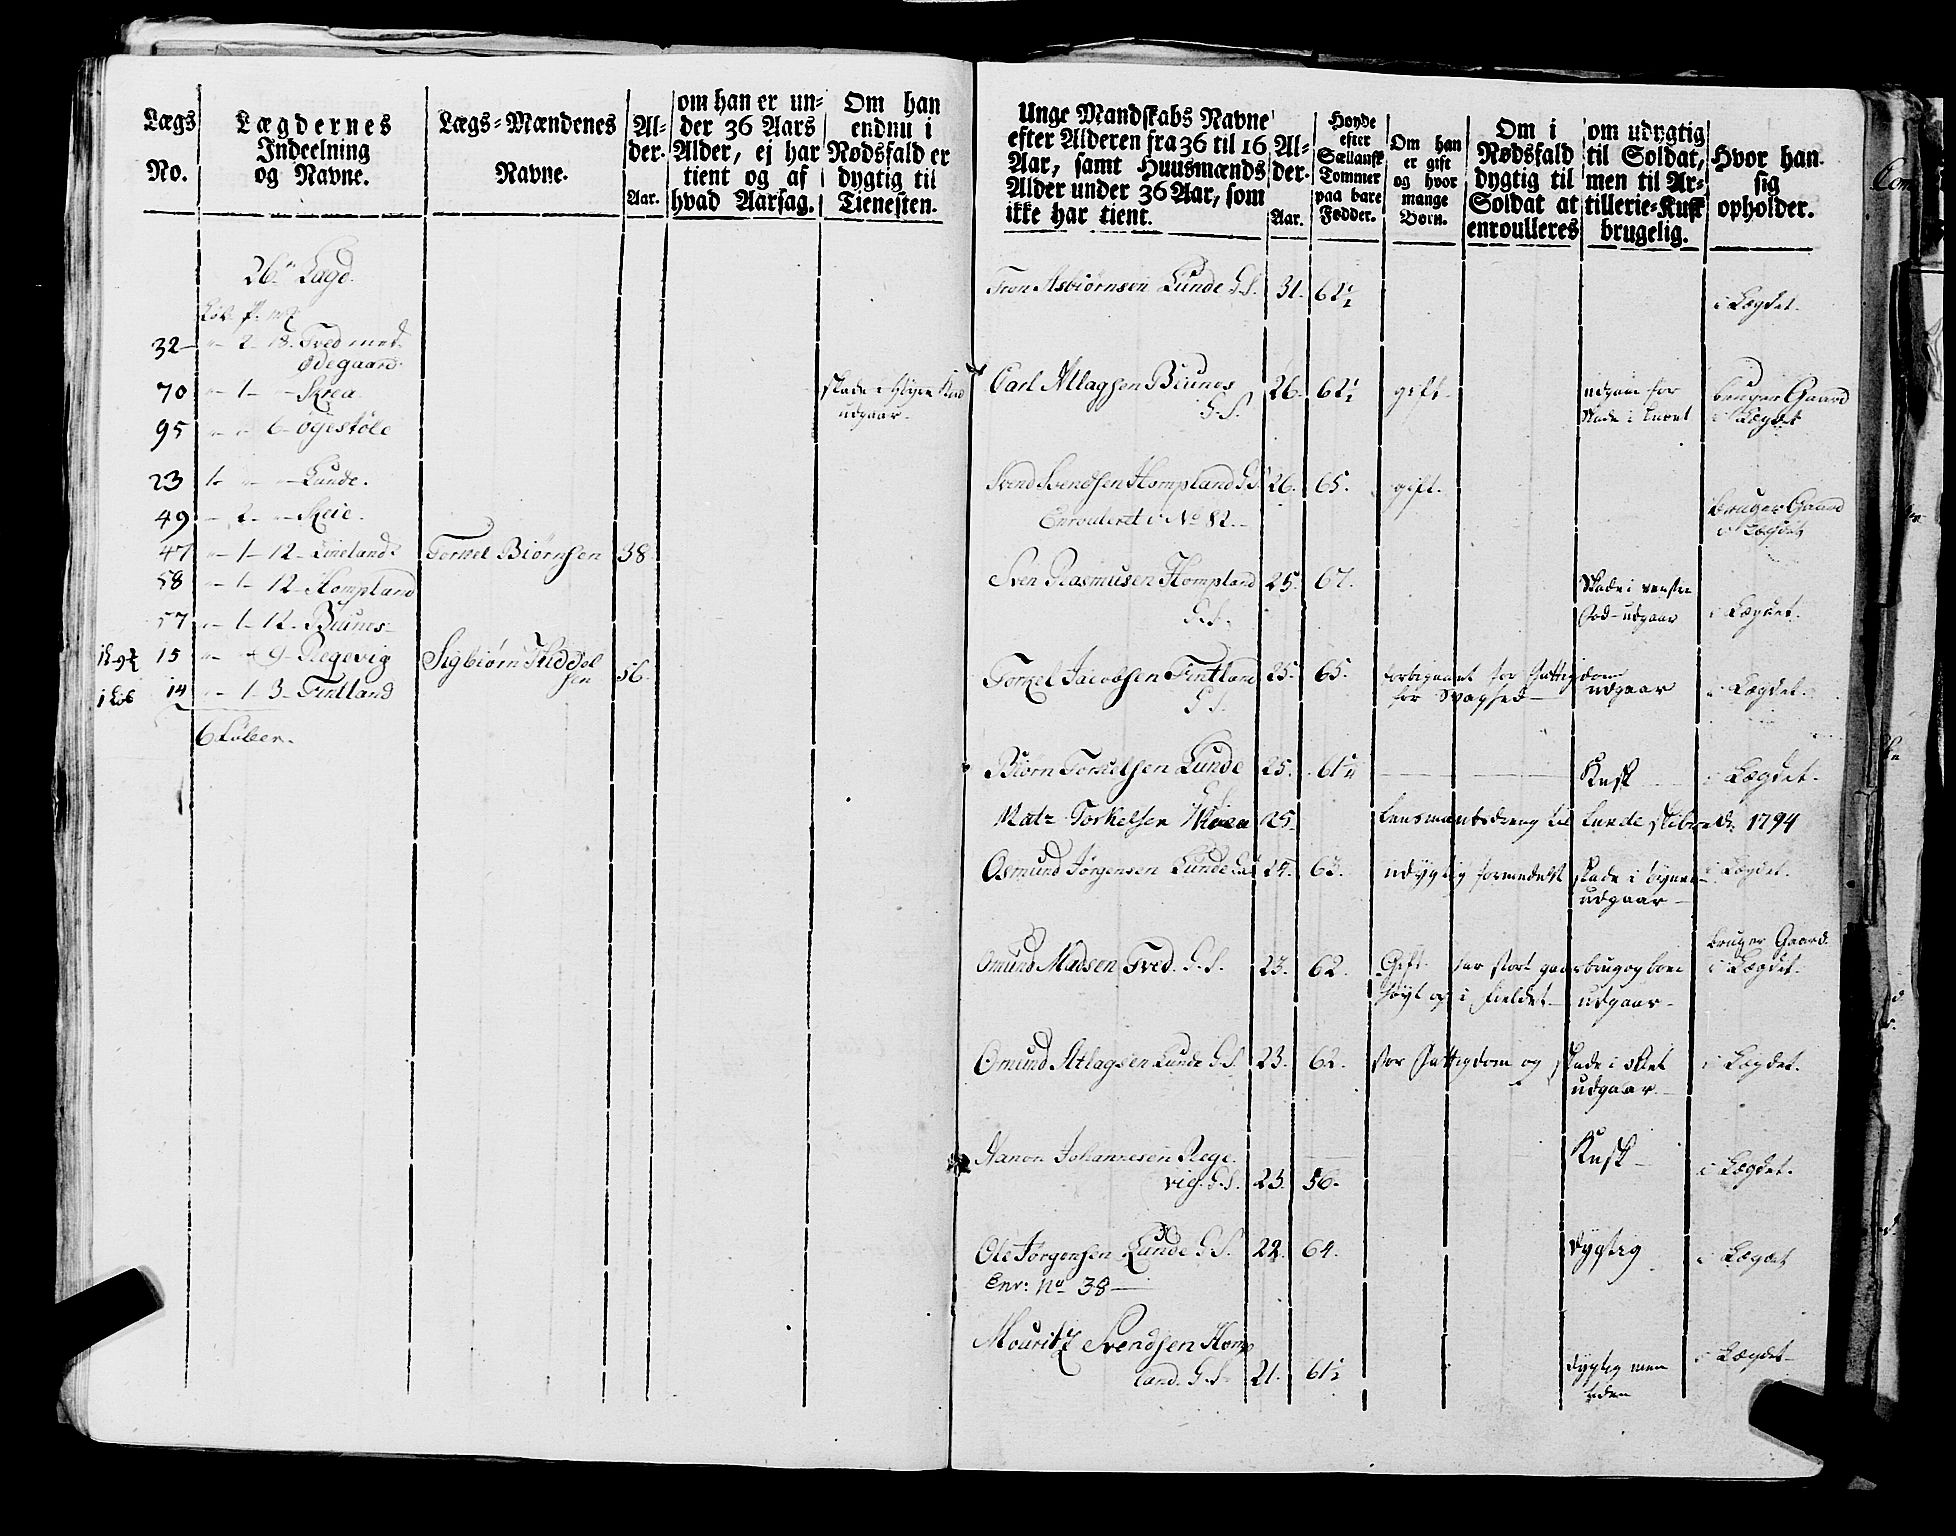 Lægs No.
Lægdernes Indeelning og Navne.
Lægs-Mændenes Navne.
Alder. Aar.
om han er under 36 Aars Alder, ej har tient og af hvad Aarsag.
Om han endnu i Nødsfald er dygtig til Tienesten.
26de Lægd.
32 - 2 - 18. Tved med
Ødegaard.
70 - 1 - Skrea
95 - - 6 - Øgestøle
23 1 - - Lunde.
49 - 2 - Skeie.
47 - 1 - 12 - Lineland Torkel Biørnsen 38
58 - 1 - 12 - Hompland
57 - 1 - 12 - Biunes
15 - 9 - Regevig Sigbiørn
sen 56.
14 - 1 - 3 - Fintland
6 Løber.
udgaar.
Unge Mandskabs Navne efter Alderen fra 36 til 16 Aar, samt Huusmænds Alder under 36 Aar, som ikke har tient.
Alder. Aar.
Høyde efter Sællansk Tommer paa bare Fødder.
Om han er gift og hvor mange Børn.
Om i Nødsfald dygtig til Soldat at enroulleres
om udygtig til Soldat, men til Artillerie-Kusk brugelig.
Hvor han sig opholder.
Tron Asbiørnsen Lunde G.S. 31. 62½ i Lægdet.
Carl Atlagsen Biunes 26. 62½ gift. udgaar for bruger Gaard
G.S. skade i Laaret i Lægdet
Svend Svendsen Hompland G.S. 26. 65. gift. bruger Gaard
Enroulleret i No 82. i Lægdet
Sven Rasmusen Hompland 25. 67. skade i venstre
G.S. Fod udgaar i Lægdet.
Torkel Jacobsen Fintland 25. 65. for Fattigdom
G.S. for Svaghed udgaar i Lægdet.
Biørn Torkelsen Lunde 25. 61¼ Kusk i Lægdet.
Matz Torkelsen Skrea 25. Lensmandsdreng til Lunde Skibrede 1794
Osmund Jørgensen Lunde G.S. 24. 63. udygtig formedelst skade i i Lægdet.
udgaar
Omund Madsen Tved. G.S. 23. 62. Gift. har stort gaardbrug og boer bruger Gaard i Lægdet.
høyt op i Fieldet udgaar.
Omund Atlagsen Lunde G.S. 23. 62. stor Fattigdom og skade i i Lægdet.
udgaar.
Aanon Johannesen Rege- Kusk
vig. G.S. 23. 56. i Lægdet.
Ole Jørgensen Lunde G.S. 22. 64. dygtig i Lægdet
Enr: No 38
Mouritz Svendsen Homp
land. G.S. 21. 61½ dygtig men i Lægdet
liden